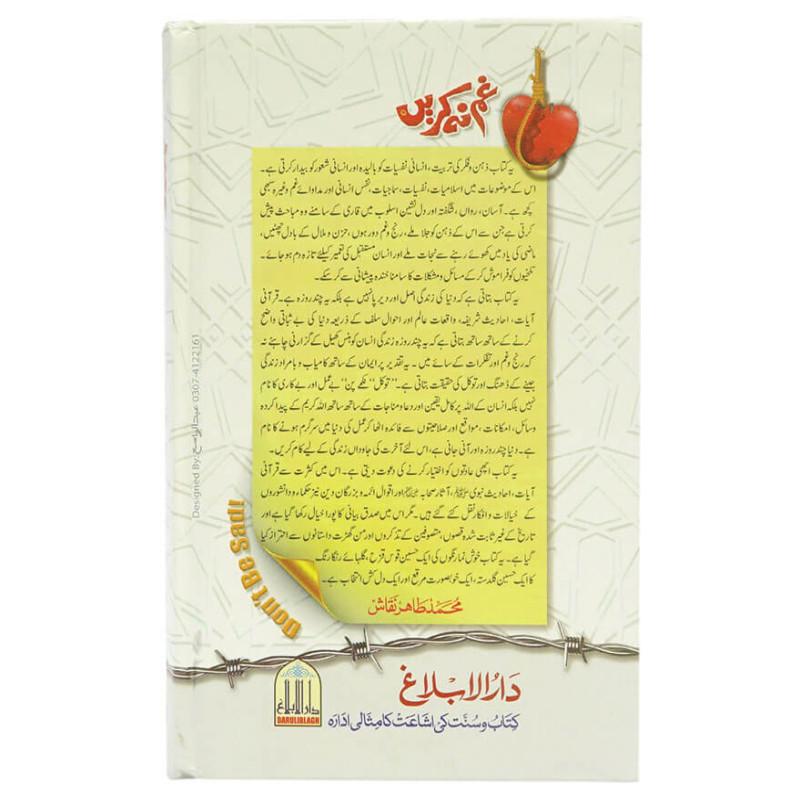 غم نہ کریں
یہ کتاب ذہن و فکر کی تربیت، انسانی نفسیات کو بالیدہ اور انسانی شعور کو بیدار کرتی ہے۔
اس کے موضوعات میں اسلامیات، نفسیات، سماجیات، نفس انسانی اور مداوائے غم وغیرہ سبھی
کچھ ہے۔ آسان، رواں، شگفتہ اور دل نشین اسلوب میں قاری کے سامنے وہ مباحث پیش
کرتی ہے جن سے اس کے ذہن کو جلا ملے، رنج و غم دور ہوں، حزن و ملال کے بادل چھٹیں،
ماضی کی یاد میں کھوئے رہنے سے نجات ملے اور انسان مستقبل کی تعمیر کیلئے تازہ دم ہو جائے۔
تلخیوں کو فراموش کر کے مسائل و مشکلات کا سامنا خندہ پیشانی سے کر سکے۔
یہ کتاب بتاتی ہے کہ دنیا کی زندگی اصل اور دیرپا نہیں ہے بلکہ یہ چند روزہ ہے۔ قرآنی
آیات، احادیث شریفہ، واقعات عالم اور احوال سلف کے ذریعہ دنیا کی بے ثباتی واضح
کرنے کے ساتھ ساتھ بتاتی ہے کہ یہ چند روزہ زندگی انسان کو ہنس کھیل کے گزارنی چاہئے نہ
کہ رنج و غم اور تفکرات کے سائے میں۔ یہ تقدیر پر ایمان کے ساتھ کامیاب و بامراد زندگی
جینے کے ڈھنگ اور توکل کی حقیقت بتاتی ہے۔ "توکل" نکمے پن، بے عمل اور بے کاری کا نام
نہیں بلکہ انسان کے اللہ پر کامل یقین اور دعا و مناجات کے ساتھ ساتھ اللہ کریم کے پیدا کردہ
وسائل، امکانات، مواقع اور صلاحیتوں سے فائدہ اٹھا کر عمل کی دنیا میں سرگرم ہونے کا نام
ہے۔ دنیا چند روزہ اور آنی جانی ہے، اس لئے آخرت کی جاوداں زندگی کے لیے کام کریں۔
یہ کتاب اچھی عادتوں کو اختیار کرنے کی دعوت دیتی ہے۔ اس میں کثرت سے قرآنی
آیات، احادیث نبوی ﷺ، آثار صحابہ اور اقوال ائمہ و بزرگان دین نیز حکماء و دانشوروں
کے خیالات و افکار نقل کئے گئے ہیں۔ مگر اس میں صدق بیانی کا پورا خیال رکھا گیا ہے اور
تاریخ کے غیر ثابت شدہ قصوں، متصوفین کے تذکروں اور من گھڑت داستانوں سے احتراز کیا
گیا ہے۔ یہ کتاب خوش نما رنگوں کی ایک حسین قوس قزح، گلہائے رنگا رنگ
کا ایک حسین گلدستہ، ایک خوبصورت مرقع اور ایک دل کش انتخاب ہے۔
محمد طاہر نقاش
Don't Be Sad!
Designed By: 0307-4122161
دارالابلاغ
DARULIBLAGH
دارالابلاغ
کتاب و سنت کی اشاعت کا مثالی ادارہ